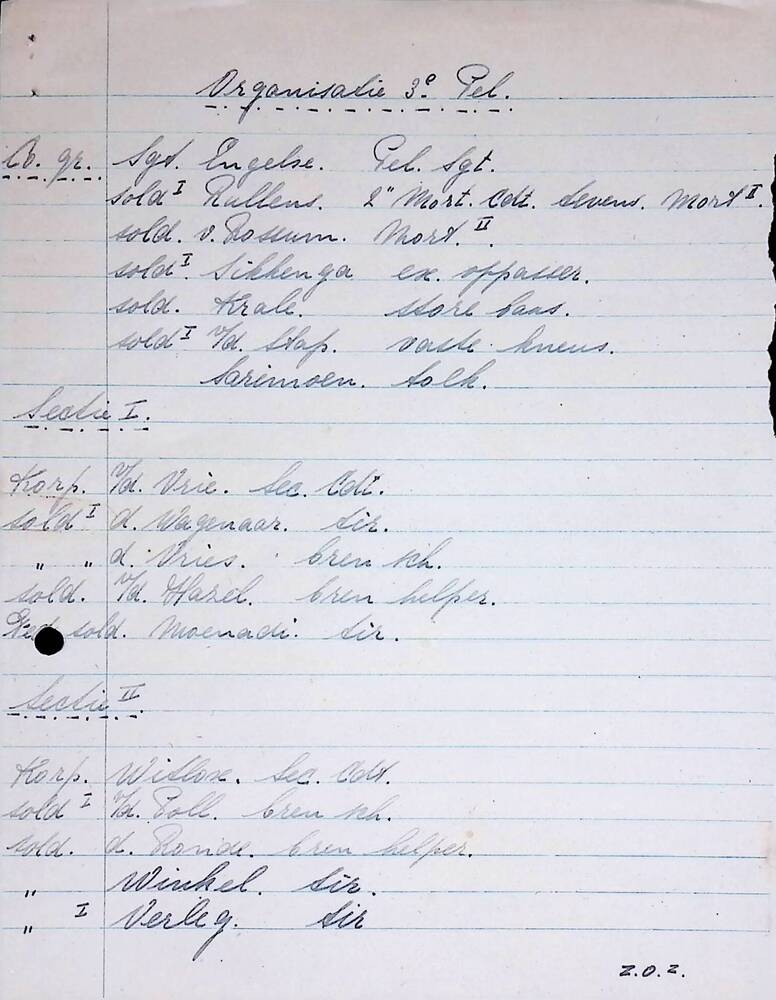 Organisatie 3e Pel.
Co. gr. Sgt. Engelse. Pel. Sgt.
sold I Rullens. 2" Mort. Cdt. tevens. Mort I.
sold. v. Rossum. Mort. II
sold I. Sikkenga ex. oppasser.
sold. Krale. store baas.
sold I v/d. Stap. vaste kneus.
Sarimoen. tolk.
Sectie I.
Korp. v/d. Vrie. Sec. Cdt.
sold I d. Wagenaar. tir.
" " d. Vries. bren sch.
sold. v/d. Hazel. bren helper.
sold. Moenadi. tir.
Sectie II
Korp. Witlox. Sec. Cdt.
sold I v/d. Poll. bren sch.
sold. d. Ronde. bren helper.
" Winkel. tir.
" I Verleg. tir
z.o.z.